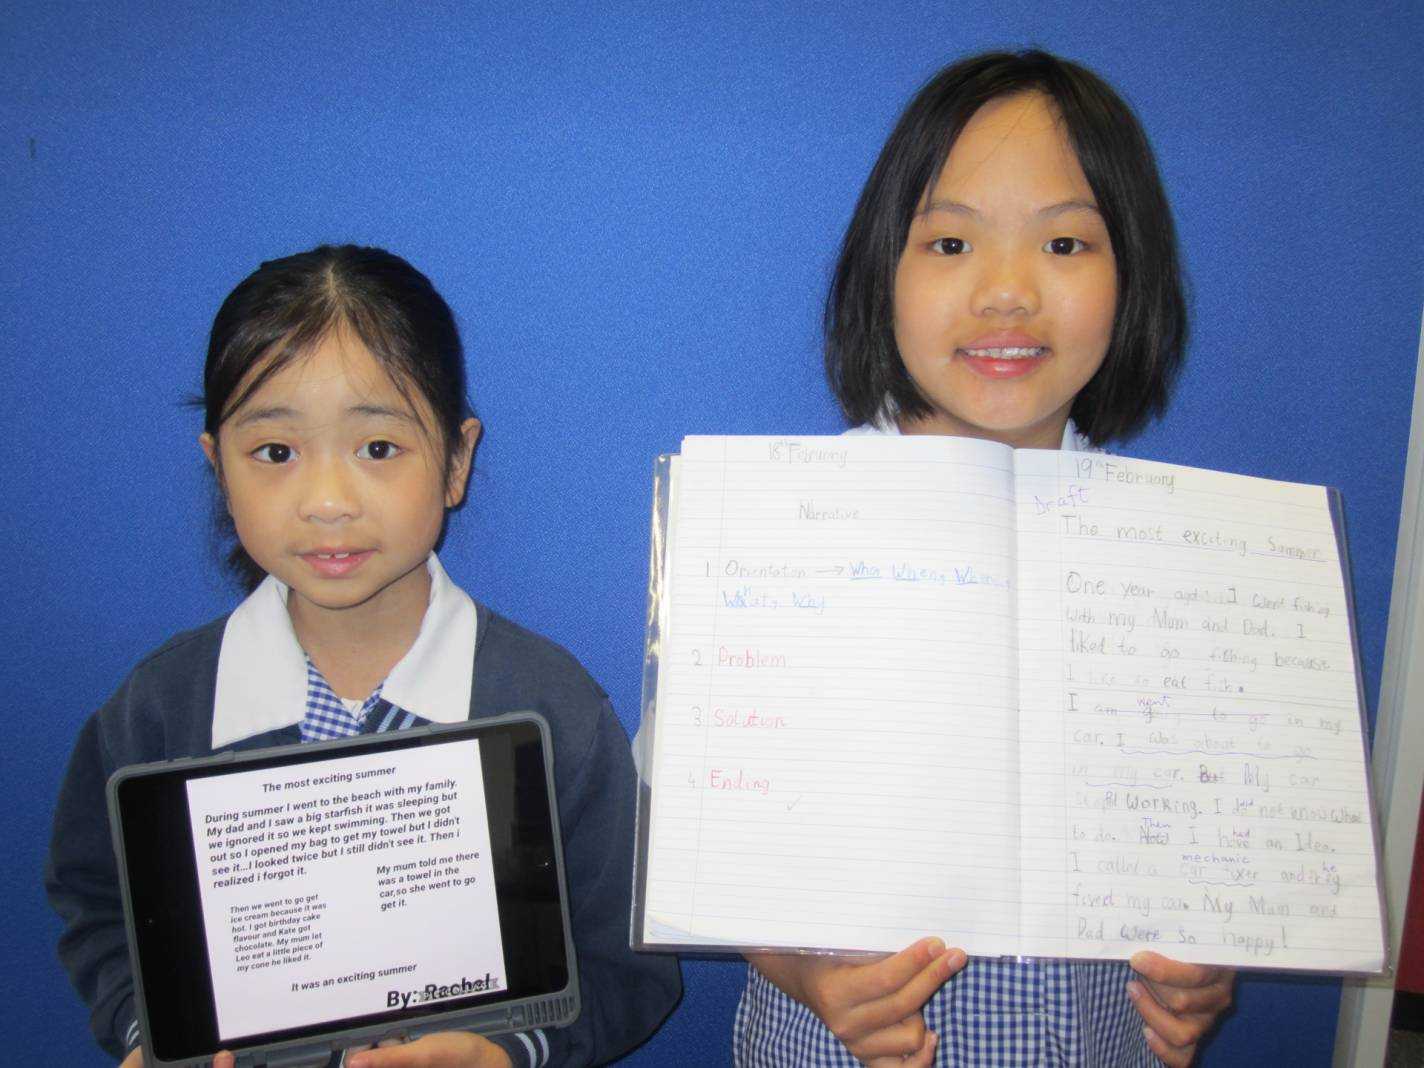 The most exciting summer
During summer I went to the beach with my family.
My dad and I saw a big starfish it was sleeping but
we ignored it so we kept swimming. Then we got
out so I opened my bag to get my towel but I didn't
see it...I looked twice but I still didn't see it. Then i
realized i forgot it.
My mum told me there
was a towel in the
car,so she went to go
get it.
Then we went to go get
ice cream because it was
hot. I got birthday cake
flavour and Kate got
chocolate. My mum let
Leo eat a little piece of
my cone he liked it.
It was an exciting summer
By: Rachel
18th February
Narrative
1 Orientation → Who When, Where,
What, Why
2 Problem
3 Solution
4 Ending
19th February
Draft
The most exciting Summer
One year ago I went fishing
with my Mum and Dad. I
liked to go fishing because
I like to eat fish.
went
I am to go in my
car. I was about to go
in my car. But My car
working. I did not know what
Then had
Now I have an Idea.
to do.
mechanic he
I called a car fixer and
fixed my car. My Mum and
Dad were so happy!